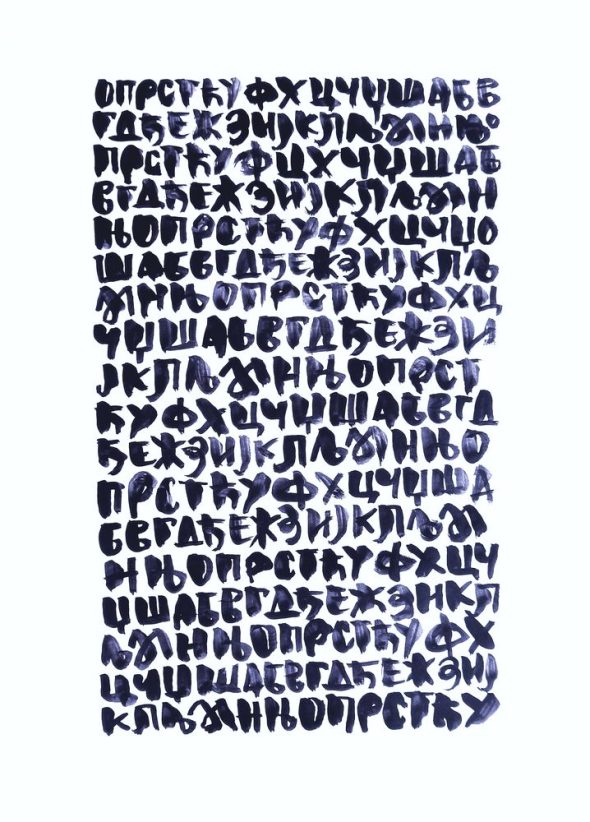 ОПРСТЋУФХЦЧЏШАБВ
ГДЂЕЖЗИЈКЛЉМНЊО
ПРСТЋУФЦХЧЏШАБ
ВГДЂЕЖЗИЈКЛЉМН
ЊОПРСТЋУФХЦЧЏО
ШАБВГДЂЕЖЗИЈКЛЉ
МНЊОПРСТЋУФХЦ
ЧЏШАБВГДЂЕЖЗИ
ЈКЛЉМНЊОПРСТ
ЋУФХЦЧЏШАБВГД
ЂЕЖЗИЈКЛЉМНЊО
ПРСТЋУФХЦЧЏША
БВГДЂЕЖЗИЈКЛЉМ
НЊОПРСТЋУФХЦЧ
ЏШАБВГДЂЕЖЗНКЛ
ЉМНЊОПРСТЋУФХ
ЦЧЏШАБВГДЂЕЖЗИЈ
КЛЉМНЊОПРСТЋУ